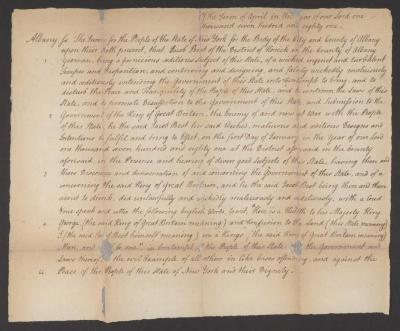 Of the Term of April in the Year of our Lord one
thousand seven hundred and eighty one.
Albany, ss The Jurors for the People of the State of New York for the Body of the City and County of Albany
upon their Oath present, that Jacob Best of the District of in the County of Albany
Yeoman, being a pernicious and seditious Subject of this State, of a wicked and turbulent
Temper and Disposition, and contriving and designing and falsely wickedly maliciously
and seditiously intending the Government of this State into Contempt to bring, and to
disturb the Peace and Tranquility of the People of this State, and to contemn the Laws of this
State, and to promote Disaffection to the Government of this State, and Submission to the
Government of the King of Great Britain, the Enemy of and now at War with the People
of this State, he the said Jacob Best his said Wicked, malicious and seditious Designs and
Intentions to fulfil and bring to Effect on the first Day of January in the Year of our Lord
one thousand seven hundred and eighty one at the District aforesaid in the County
aforesaid in the Presence and hearing of divers good Subjects of this State, having then and
there Discourse and of and concerning the Government of this State, and of and
concerning the said King of Great Britain, and he the said Jacob Best being then and there
about to drink, did unlawfully and wickedly maliciously and seditiously, with a loud
Voice speak and utter the following English Words to wit, "Here is a Health to his Majesty King
George (the said King of Great Britain meaning) and to the Land (this State meaning)
I (the said Jacob Best himself meaning) am a Kings (the said King of Great Britain meaning)
Man, and be one" in Contempt of the People of this State the Government and
Laws thereof to the evil Example of all others in like Case offending, and against the
Peace of the People of this State of New York and their Dignity.